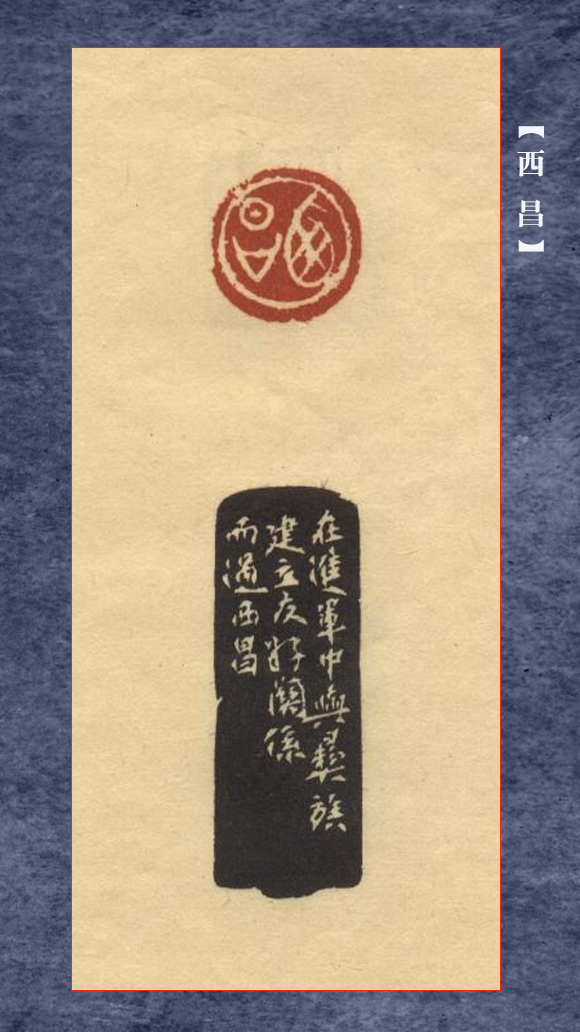 【西昌】
西昌
在進軍中與彝族
建立友好關係
而過西昌